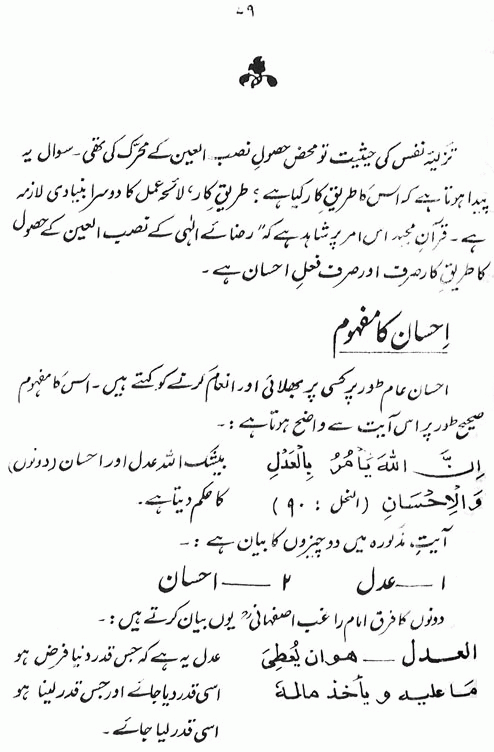 ۷۹
تزکیۂ نفس کی حیثیت تو محض حصولِ نصب العین کے محرّک کی تھی۔ سوال یہ
پیدا ہوتا ہے کہ اس کا طریقِ کار کیا ہے؛ طریقِ کار، لائحہ عمل کا دوسرا بنیادی لازمہ
ہے۔ قرآنِ مجید اس امر پر شاہد ہے کہ "رضائے الٰہی کے نصب العین کے حصول
کا طریقِ کار صرف اور صرف فعلِ احسان ہے۔
اِحسان کا مفہوم
احسان عام طور پر کسی پر بھلائی اور انعام کرنے کو کہتے ہیں۔ اس کا مفہوم
صحیح طور پر اس آیت سے واضح ہوتا ہے:۔
اِنَّ اللہَ یَاْمُرُ بِالْعَدْلِ بیشک اللہ عدل اور احسان (دونوں)
وَالْاِحْسَانِ (النحل : ۹۰) کا حکم دیتا ہے۔
آیتِ مذکورہ میں دو چیزوں کا بیان ہے :۔
۱ — عدل ۲ — احسان
دونوں کا فرق امام راغب اصفہانیؒ یوں بیان کرتے ہیں:۔
العدل — ھو ان یُعطِیَ عدل یہ ہے کہ جس قدر دینا فرض ہو
مَا علیہ و یأخذ مالہٗ اسی قدر دیا جائے اور جس قدر لینا ہو
اسی قدر لیا جائے۔